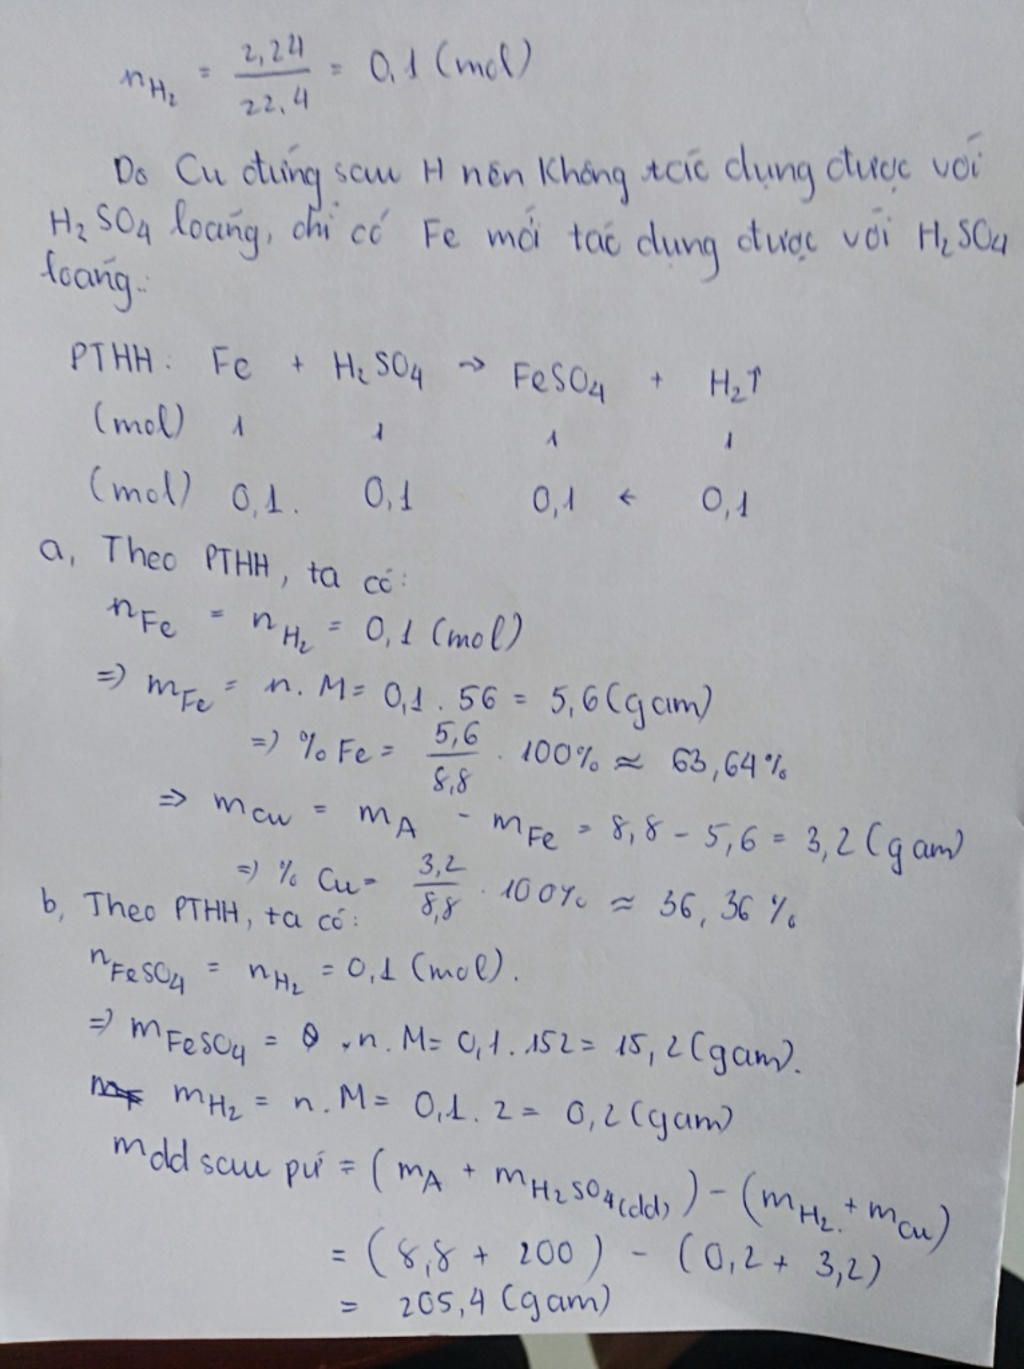 n_H₂ = 2,24/22,4 = 0,1 (mol)
Do Cu đứng sau H nên không tác dụng được với
H₂SO₄ loãng, chỉ có Fe mới tác dụng được với H₂SO₄
loãng.
PTHH: Fe + H₂SO₄ → FeSO₄ + H₂↑
(mol) 1 1 1 1
(mol) 0,1. 0,1 0,1 ← 0,1
a, Theo PTHH, ta có:
n_Fe = n_H₂ = 0,1 (mol)
=> m_Fe = n. M = 0,1 . 56 = 5,6 (gam)
=> % Fe = 5,6/8,8 . 100% ≈ 63,64%
=> m_Cu = m_A - m_Fe = 8,8 - 5,6 = 3,2 (gam)
=> % Cu = 3,2/8,8 . 100% ≈ 36,36 %
b, Theo PTHH, ta có:
n_FeSO₄ = n_H₂ = 0,1 (mol).
=> m_FeSO₄ = n. M = 0,1. 152 = 15,2 (gam).
m_H₂ = n. M = 0,1. 2 = 0,2 (gam)
m dd sau pứ = (m_A + m_H₂SO₄(dd)) - (m_H₂ + m_Cu)
= (8,8 + 200) - (0,2 + 3,2)
= 205,4 (gam)